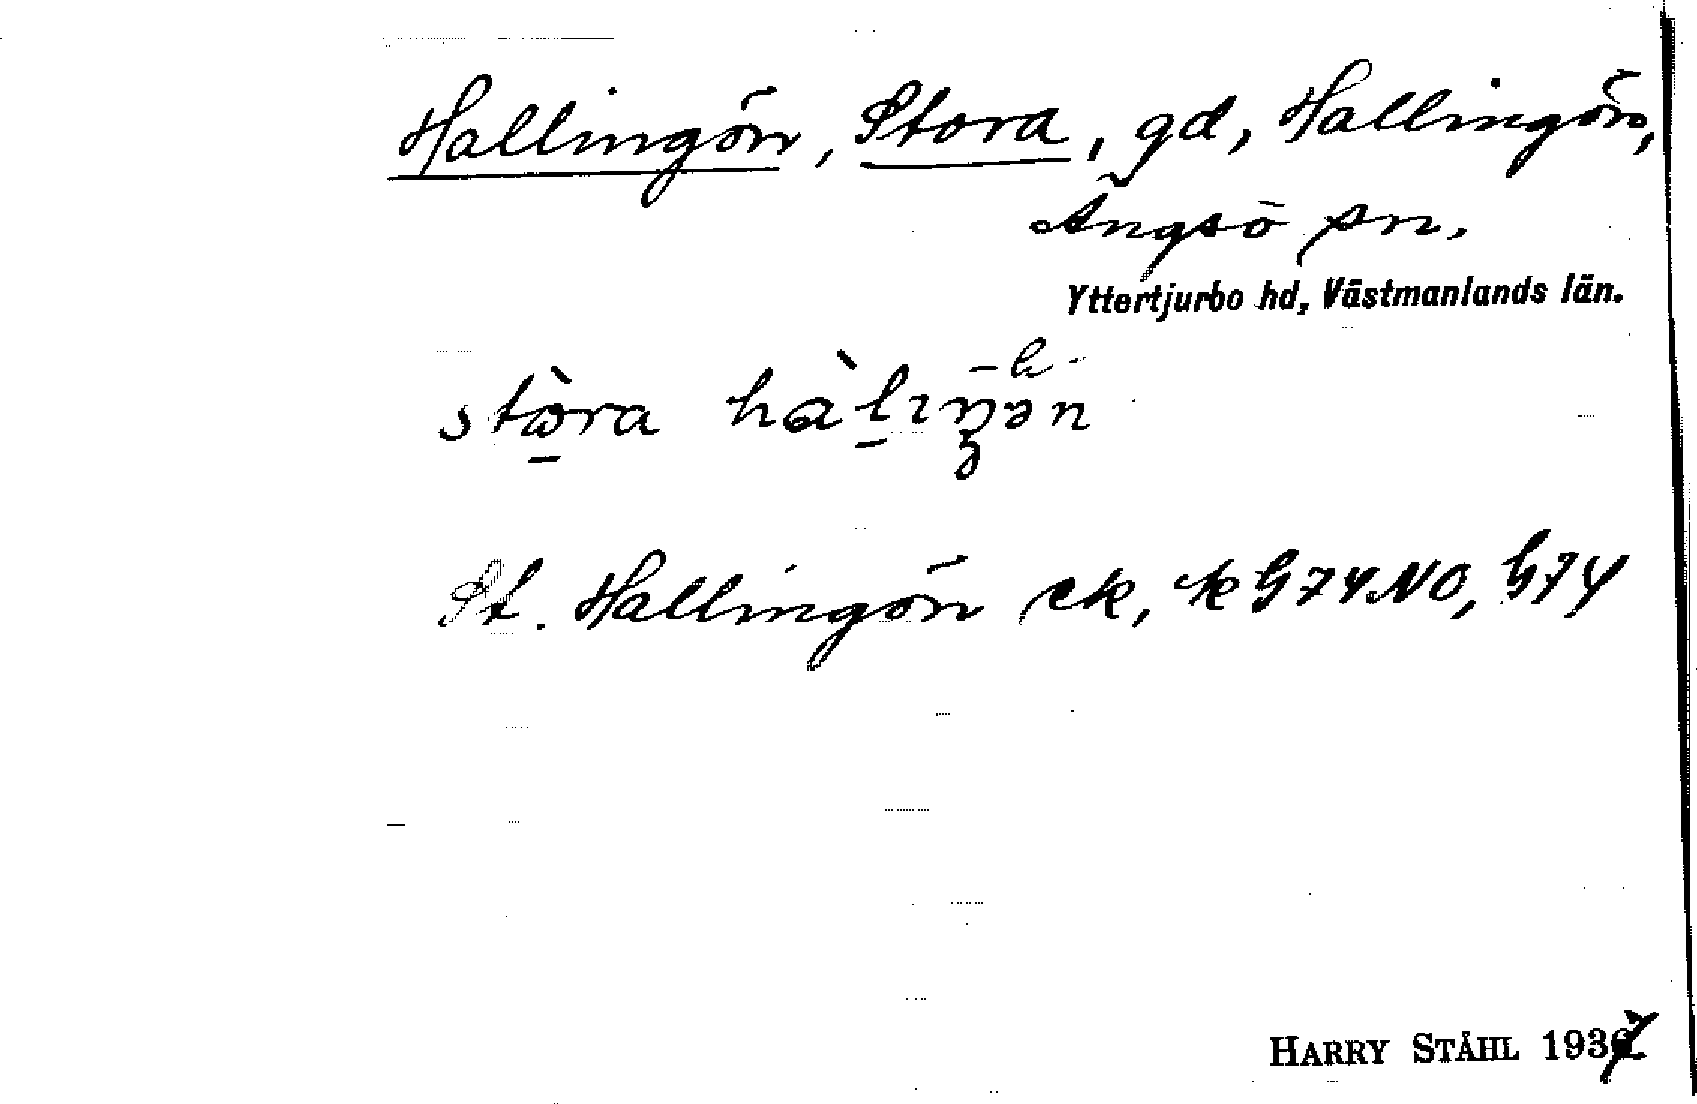 Hallingön, Stora, gd, Hallingön,
Ängsö sn.
Yttertjurbo hd, Västmanlands län.
St. Hallingön ek, k G74NO, G74
HARRY STÅHL 1937